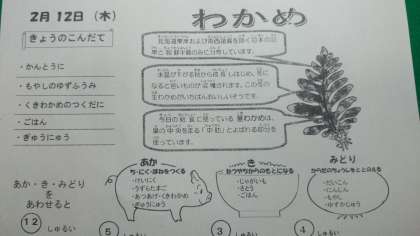 2月 12日 (木)
わかめ
きょうのこんだて
・かんとうに
・もやしのゆずふうみ
・くきわかめのつくだに
・ごはん
・ぎゅうにゅう
北海道東岸および南西諸島を除く日本の沿
岸と朝鮮半島のみに分布しています。
水温が下がる秋から成長しはじめ、冬に
今日の給食に使っている茎わかめは、
葉の中央を走る「中肋」とよばれる部分を
使っています。
あか・き・みどり
を
あわせると
12 しゅるい
あか
ち・にく・ほねをつくる
・けいにく
・うずらたまご
・あつあげ・くきわかめ
・ぎゅうにゅう
5 しゅるい
き
ねつやちからのもとになる
・じゃがいも
・さとう
・ごはん
3 しゅるい
みどり
からだのちょうしをととのえる
・だいこん
・にんじん
・もやし
・ゆずかじゅう
4 しゅるい